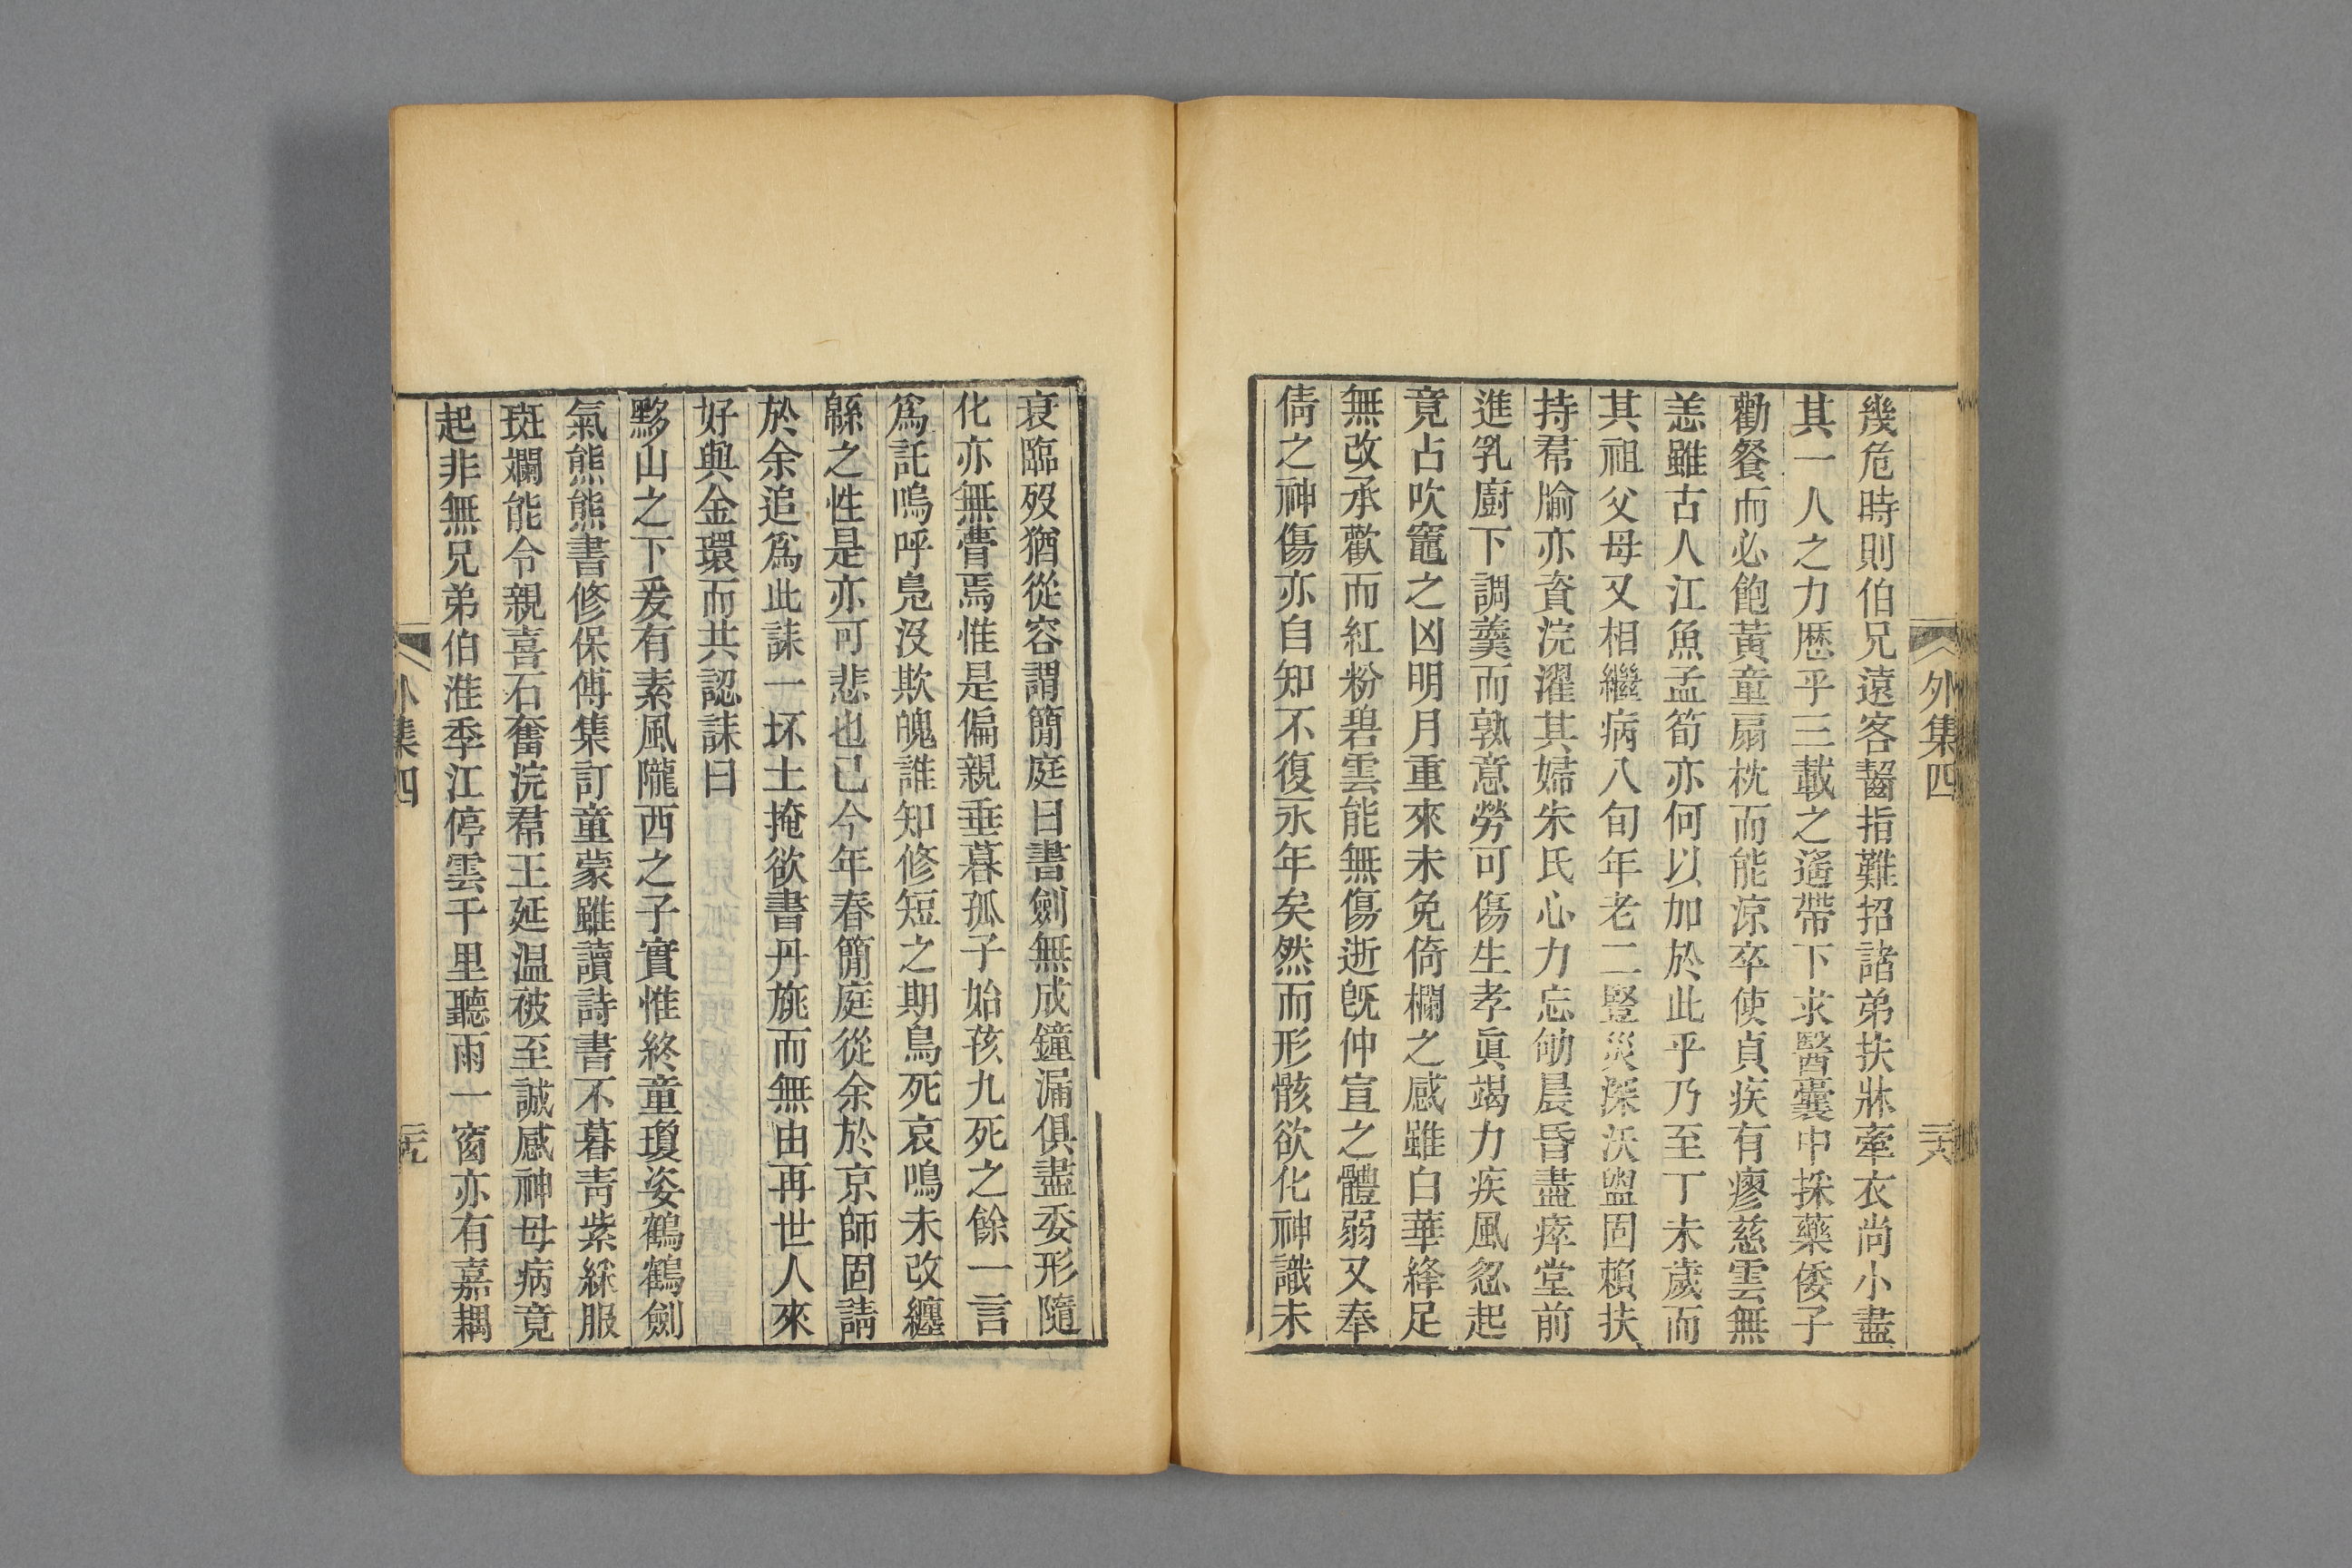 外集四
二十八
幾危時則伯兄遠客齧指難招諸弟扶牀牽衣尚小盡
其一人之力歷乎三載之遙帶下求醫囊中採藥倭子
勸餐而必飽黃童扇枕而能凉卒使貞疾有瘳慈雲無
恙雖古人江魚孟筍亦何以加於此乎乃至丁未歲而
其祖父母又相繼病八旬年老二豎災深沃盥固賴扶
持帬牏亦資浣濯其婦朱氏心力忘劬晨昏盡瘁堂前
進乳廚下調羹而孰意勞可傷生孝眞竭力疾風忽起
竟占吹竈之凶明月重來未免倚欄之感雖白華絳足
無改承歡而紅粉碧雲能無傷逝旣仲宣之體弱又奉
倩之神傷亦自知不復永年矣然而形骸欲化神識未
衰臨歿猶從容謂簡庭曰書劍無成鐘漏俱盡委形隨
化亦無瞢焉惟是偏親垂暮孤子始孩九死之餘一言
爲託嗚呼鳧沒欺魄誰知修短之期鳥死哀鳴未改纏
緜之性是亦可悲也已今年春簡庭從余於京師固請
於余追爲此誄一坏土掩欲書丹旐而無由再世人來
好與金環而共認誄曰
黟山之下爰有素風隴西之子實惟終童瓊姿鶴鶴劍
氣熊熊書修保傅集訂童蒙雖讀詩書不暮靑紫綵服
斑斕能令親喜石奮浣帬王延温被至誠感神母病竟
起非無兄弟伯淮季江停雲千里聽雨一窗亦有嘉耦
外集四
二十九